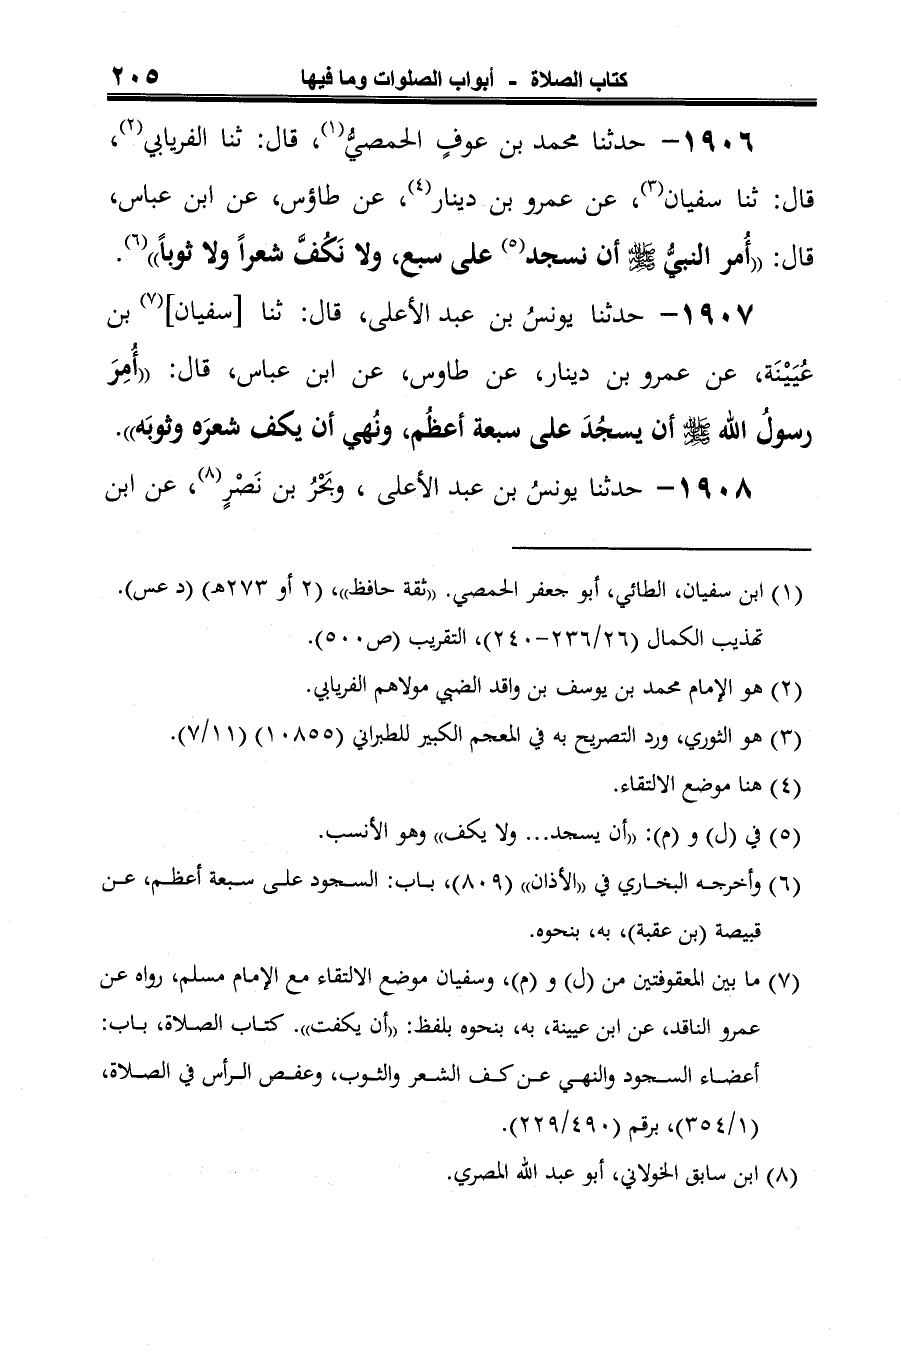 كتاب الصلاة - أبواب الصلوات وما فيها ٢٠٥
١٩٠٦- حدثنا محمد بن عوفٍ الحمصيُّ(١)، قال: ثنا الفريابي(٢)،
قال: ثنا سفيان(٣)، عن عمرو بن دينار(٤)، عن طاؤس، عن ابن عباس،
قال: ((أُمر النبيُّ ﷺ أن نسجد(٥) على سبع، ولا نَكُفَّ شعراً ولا ثوباً))(٦).
١٩٠٧- حدثنا يونسُ بن عبد الأعلى، قال: ثنا [سفيان](٧) بن
عُيَيْنَة، عن عمرو بن دينار، عن طاوس، عن ابن عباس، قال: ((أُمِرَ
رسولُ الله ﷺ أن يسجُدَ على سبعة أعظُم، ونُهي أن يكف شعرَه وثوبَه)).
١٩٠٨- حدثنا يونسُ بن عبد الأعلى ، وبَحْرُ بن نَصْرٍ(٨)، عن ابن
(١) ابن سفيان، الطائي، أبو جعفر الحمصي. ((ثقة حافظ))، (٢ أو ٢٧٣هـ) (د عس).
تهذيب الكمال (٢٣٦/٢٦-٢٤٠)، التقريب (ص٥٠٠).
(٢) هو الإمام محمد بن يوسف بن واقد الضبي مولاهم الفريابي.
(٣) هو الثوري، ورد التصريح به في المعجم الكبير للطبراني (١٠٨٥٥) (٧/١١).
(٤) هنا موضع الالتقاء.
(٥) في (ل) و (م): ((أن يسجد... ولا يكف)) وهو الأنسب.
(٦) وأخرجه البخاري في ((الأذان)) (٨٠٩)، باب: السجود على سبعة أعظم، عن
قبيصة (بن عقبة)، به، بنحوه.
(٧) ما بين المعقوفتين من (ل) و (م)، وسفيان موضع الالتقاء مع الإمام مسلم، رواه عن
عمرو الناقد، عن ابن عيينة، به، بنحوه بلفظ: ((أن يكفت)). كتاب الصلاة، باب:
أعضاء السجود والنهي عن كف الشعر والثوب، وعقص الرأس في الصلاة،
(٣٥٤/١)، برقم (٢٢٩/٤٩٠).
(٨) ابن سابق الخولاني، أبو عبد الله المصري.